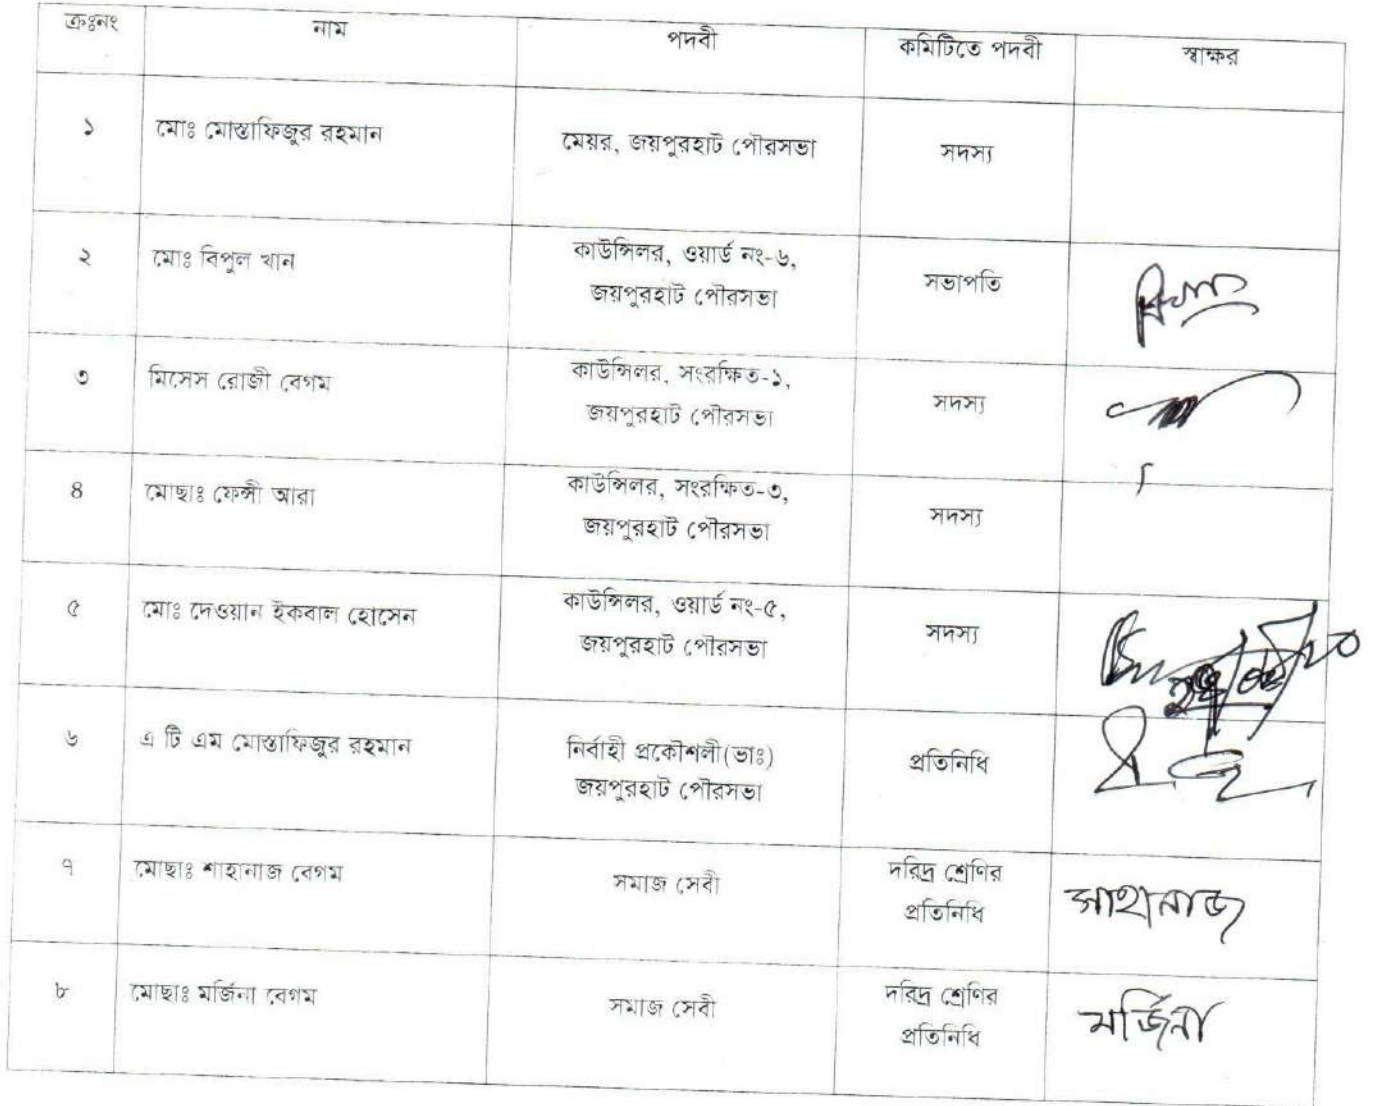 ক্রঃনং নাম পদবী কমিটিতে পদবী স্বাক্ষর
১ মোঃ মোস্তাফিজুর রহমান মেয়র, জয়পুরহাট পৌরসভা সদস্য
২ মোঃ বিপুল খান কাউন্সিলর, ওয়ার্ড নং-৬, সভাপতি
জয়পুরহাট পৌরসভা
৩ মিসেস রোজী বেগম কাউন্সিলর, সংরক্ষিত-১, সদস্য
জয়পুরহাট পৌরসভা
৪ মোছাঃ ফেন্সী আরা কাউন্সিলর, সংরক্ষিত-৩, সদস্য
জয়পুরহাট পৌরসভা
৫ মোঃ দেওয়ান ইকবাল হোসেন কাউন্সিলর, ওয়ার্ড নং-৫, সদস্য
জয়পুরহাট পৌরসভা
৬ এ টি এম মোস্তাফিজুর রহমান নির্বাহী প্রকৌশলী(ভাঃ) প্রতিনিধি
জয়পুরহাট পৌরসভা
৭ মোছাঃ শাহানাজ বেগম সমাজ সেবী দরিদ্র শ্রেণির
প্রতিনিধি সাহানাজ
৮ মোছাঃ মর্জিনা বেগম সমাজ সেবী দরিদ্র শ্রেণির
প্রতিনিধি মর্জিনা